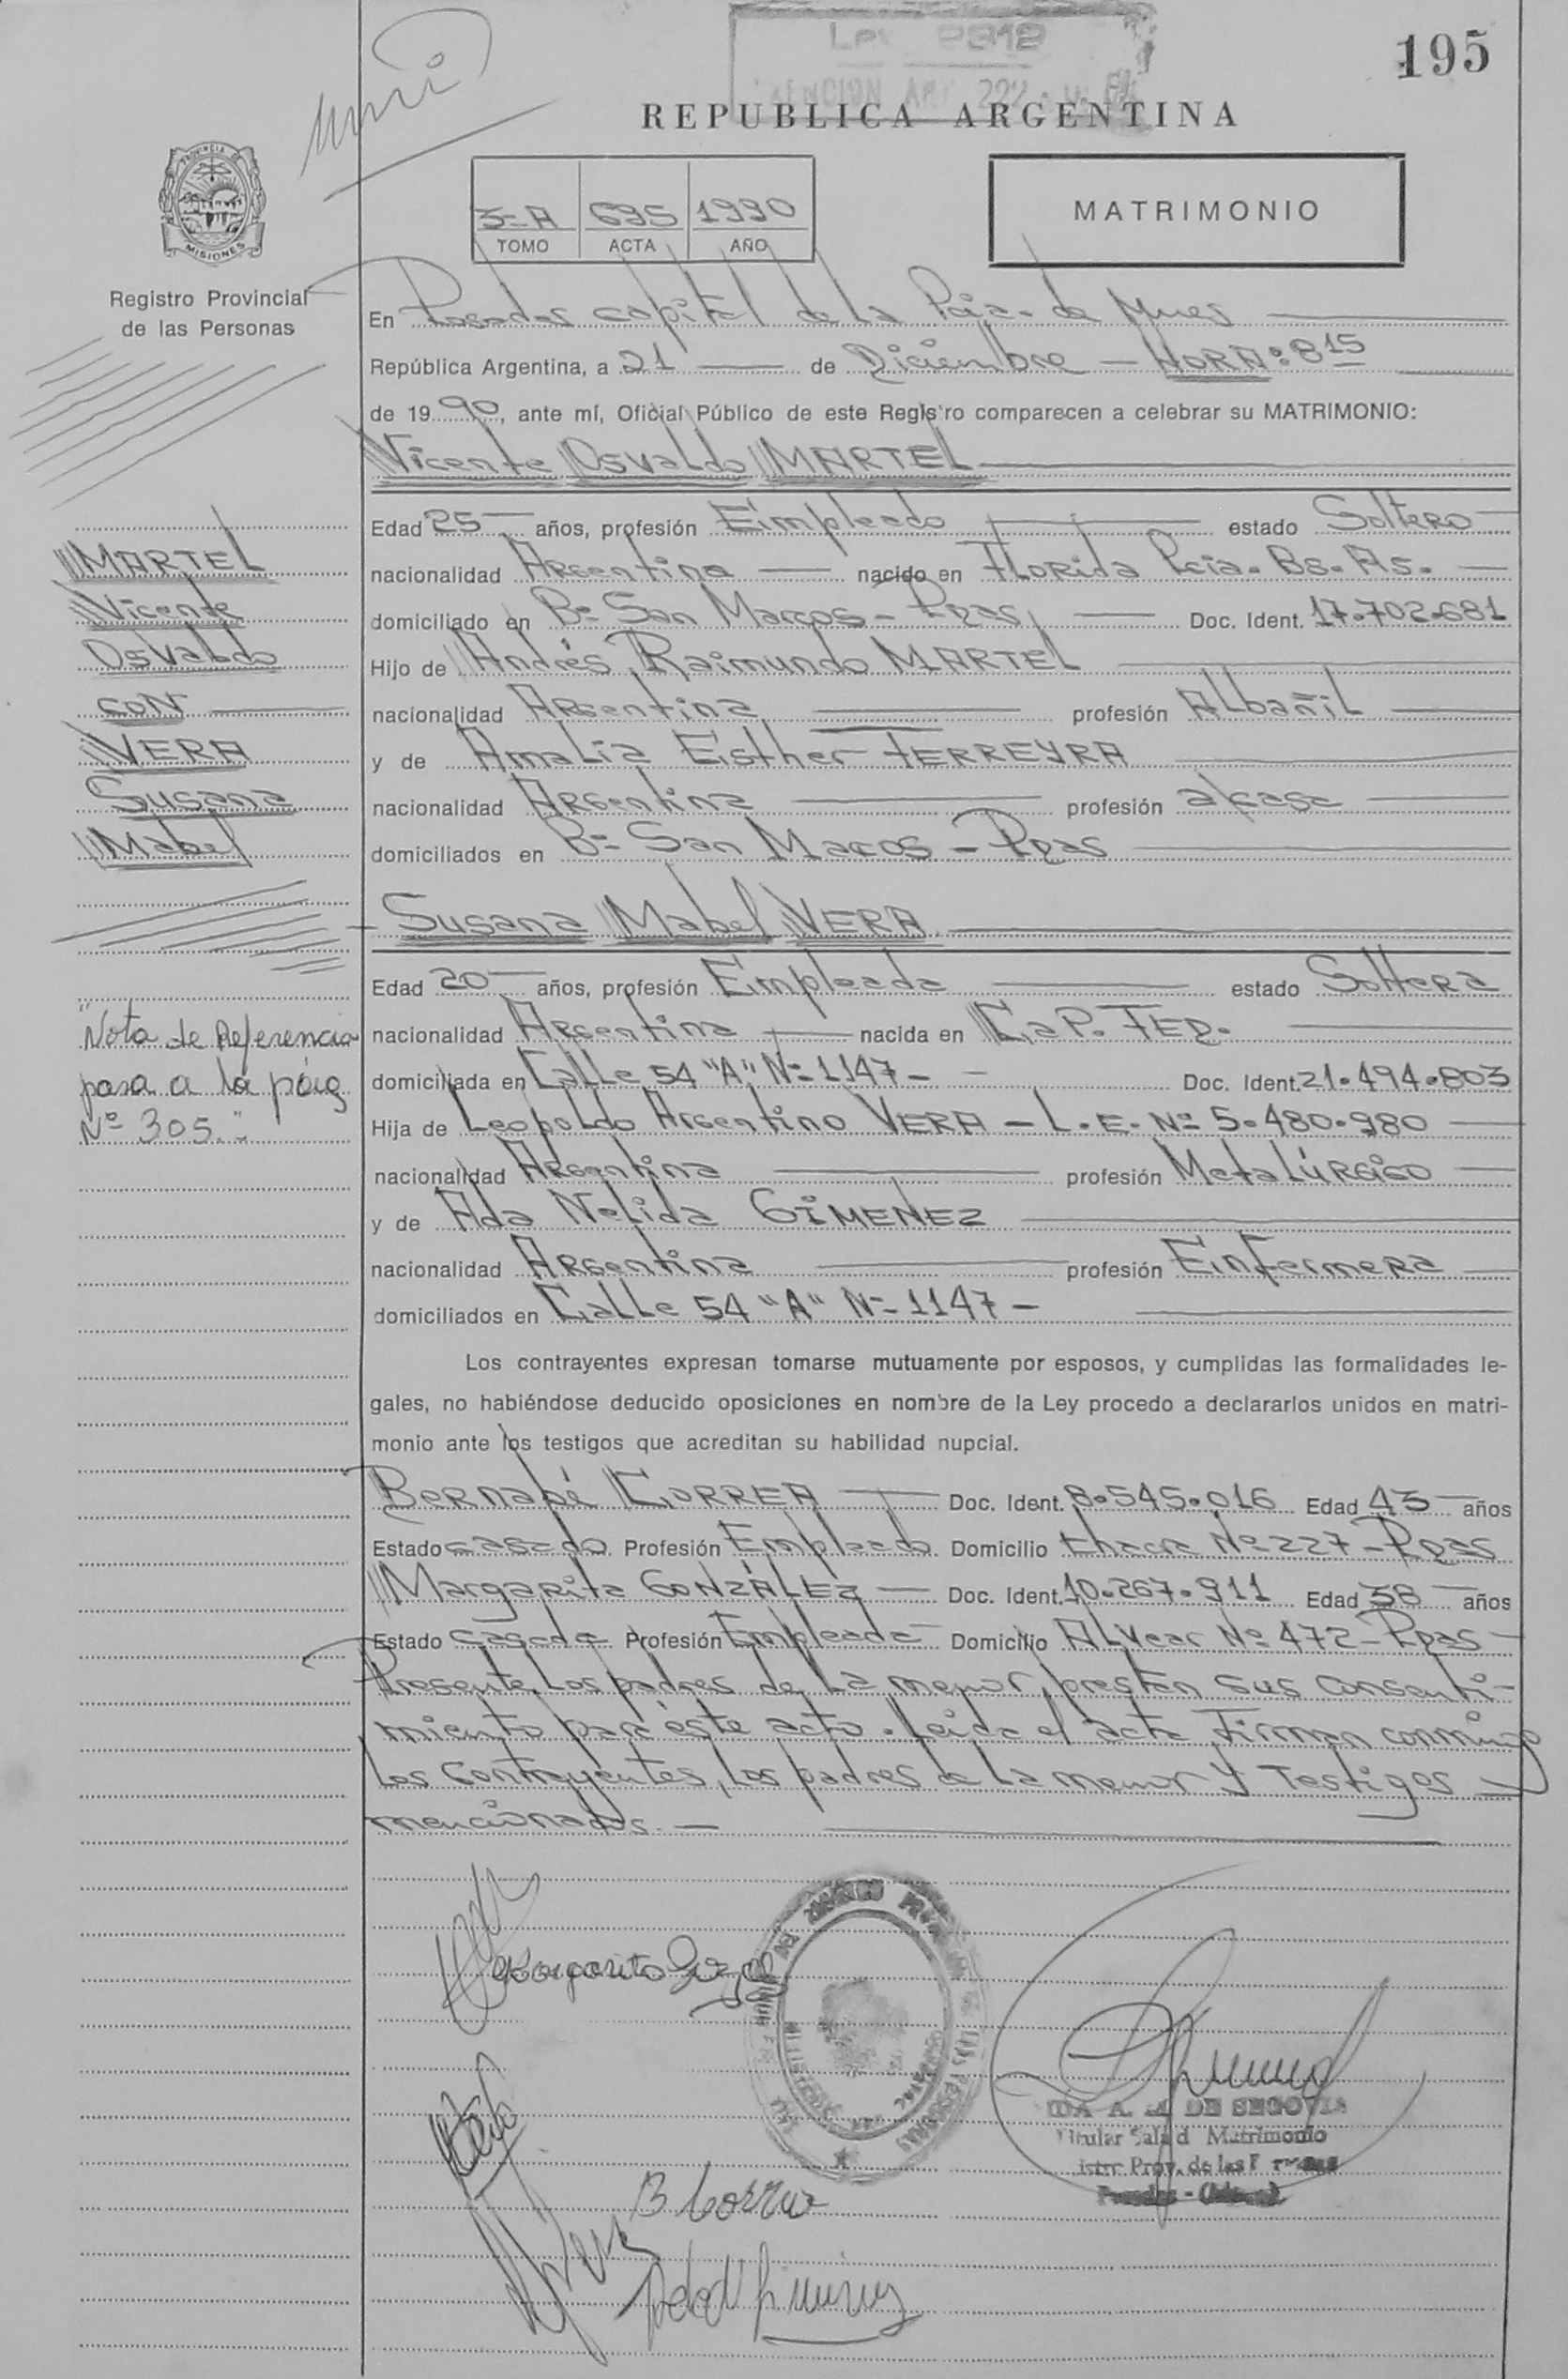 195
Ley 2312
REPUBLICA ARGENTINA
PROVINCIA DE
MISIONES
3-A 695 1990
TOMO ACTA AÑO
MATRIMONIO
Registro Provincial
de las Personas
En Posadas capital de la Pcia. de Mnes
República Argentina, a 21 de Diciembre - HORA: 8 15
de 19 90, ante mí, Oficial Público de este Registro comparecen a celebrar su MATRIMONIO:
Vicente Osvaldo MARTEL
Edad 25 años, profesión Empleado estado Soltero
nacionalidad Argentina nacido en Florida Pcia. Bs. As.
domiciliado en Bº San Marcos - Pdas Doc. Ident. 17.702.681
Hijo de Andrés Raimundo MARTEL
nacionalidad Argentina profesión Albañil
y de Amalia Esther FERREYRA
nacionalidad Argentina profesión a/casa
domiciliados en Bº San Marcos - Pdas
MARTEL
Vicente
Osvaldo
CON
VERA
Susana
Mabel
Susana Mabel VERA
Edad 20 años, profesión Empleada estado Soltera
nacionalidad Argentina nacida en CaP. FED.
domiciliada en Calle 54 "A" Nº 1147 - Doc. Ident. 21.494.803
Hija de Leopoldo Argentino VERA - L.E. Nº 5.480.980
nacionalidad Argentina profesión Metalúrgico
y de Ada Nelida GIMENEZ
nacionalidad Argentina profesión Enfermera
domiciliados en Calle 54 "A" Nº 1147 -
"Nota de Referencia
pasa a la pág
Nº 305."
Los contrayentes expresan tomarse mutuamente por esposos, y cumplidas las formalidades le-
gales, no habiéndose deducido oposiciones en nombre de la Ley procedo a declararlos unidos en matri-
monio ante los testigos que acreditan su habilidad nupcial.
Bernabé CORREA Doc. Ident. 8.545.016 Edad 43 años
Estado casado Profesión Empleado Domicilio Chacra Nº 227 - Pdas
Margarita GONZÁLEZ Doc. Ident. 10.267.911 Edad 38 años
Estado casada Profesión Empleada Domicilio ALvear Nº 472 - Pdas
Presente Los padres de La menor, prestan sus consenti-
miento para éste acto. Leida el acta Firman conmigo
Los Contrayentes, Los padres de La menor y Testigos
mencionados. -
Margarita
B Correa
A. M. DE SEGOVIA
Titular Sala d Matrimonio
Prov. de las
Posadas - (Mnes)